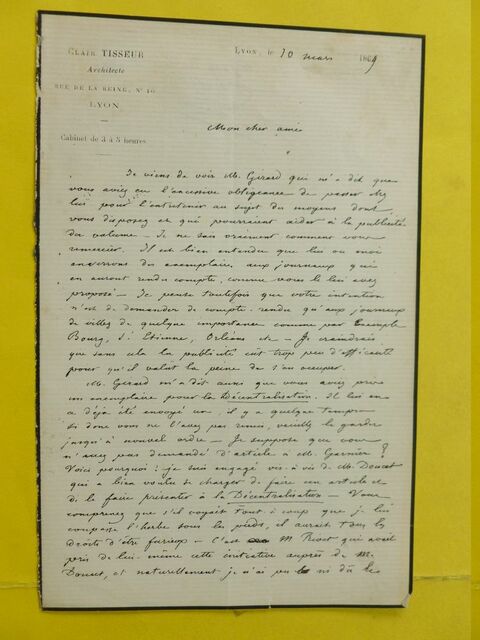 CLAIR TISSEUR
Architecte
RUE DE LA REINE, N° 10
LYON
Cabinet de 3 à 5 heures
LYON, le 10 mars 1869
Mon cher ami
Je viens de voir M. Girard qui m'a dit que
vous aviez eu l'excessive obligeance de passer chez
lui pour l'entretenir au sujet des moyens dont
vous disposez et qui pourraient aider à la publicité
du volume — Je ne sais vraiment comment vous
remercier. Il est bien entendu que lui ou moi
enverrons des exemplaires aux journaux qui
en auront rendu compte, comme vous le lui avez
proposé — Je pense toutefois que votre intention
n'est de demander de compte-rendu qu'aux journaux
de villes de quelque importance comme par exemple
Bourg, St Etienne, Orléans etc — Je craindrais
que sans cela la publicité eût trop peu d'efficacité
pour qu'il valut la peine de s'en occuper.
M. Girard m'a dit aussi que vous aviez pris
un exemplaire pour la Décentralisation. Il lui en
a déjà été envoyé un, il y a quelque temps
si donc vous ne l'avez pas remis, veuillez le garder
jusqu'à nouvel ordre — Je suppose que vous
n'avez pas demandé d'article à M. Garnier ?
Voici pourquoi : je suis engagé vis à vis de M. Doucet
qui a bien voulu se charger de faire un article et
de le faire présenter à la Décentralisation — Vous
comprenez que s'il voyait tout à coup que je lui
coupasse l'herbe sous les pieds, il aurait tous les
droits d'être furieux — C'est M. qui avait
pris de lui-même cette initiative auprès de M.
Doucet, et naturellement je n'ai pu ni dû les